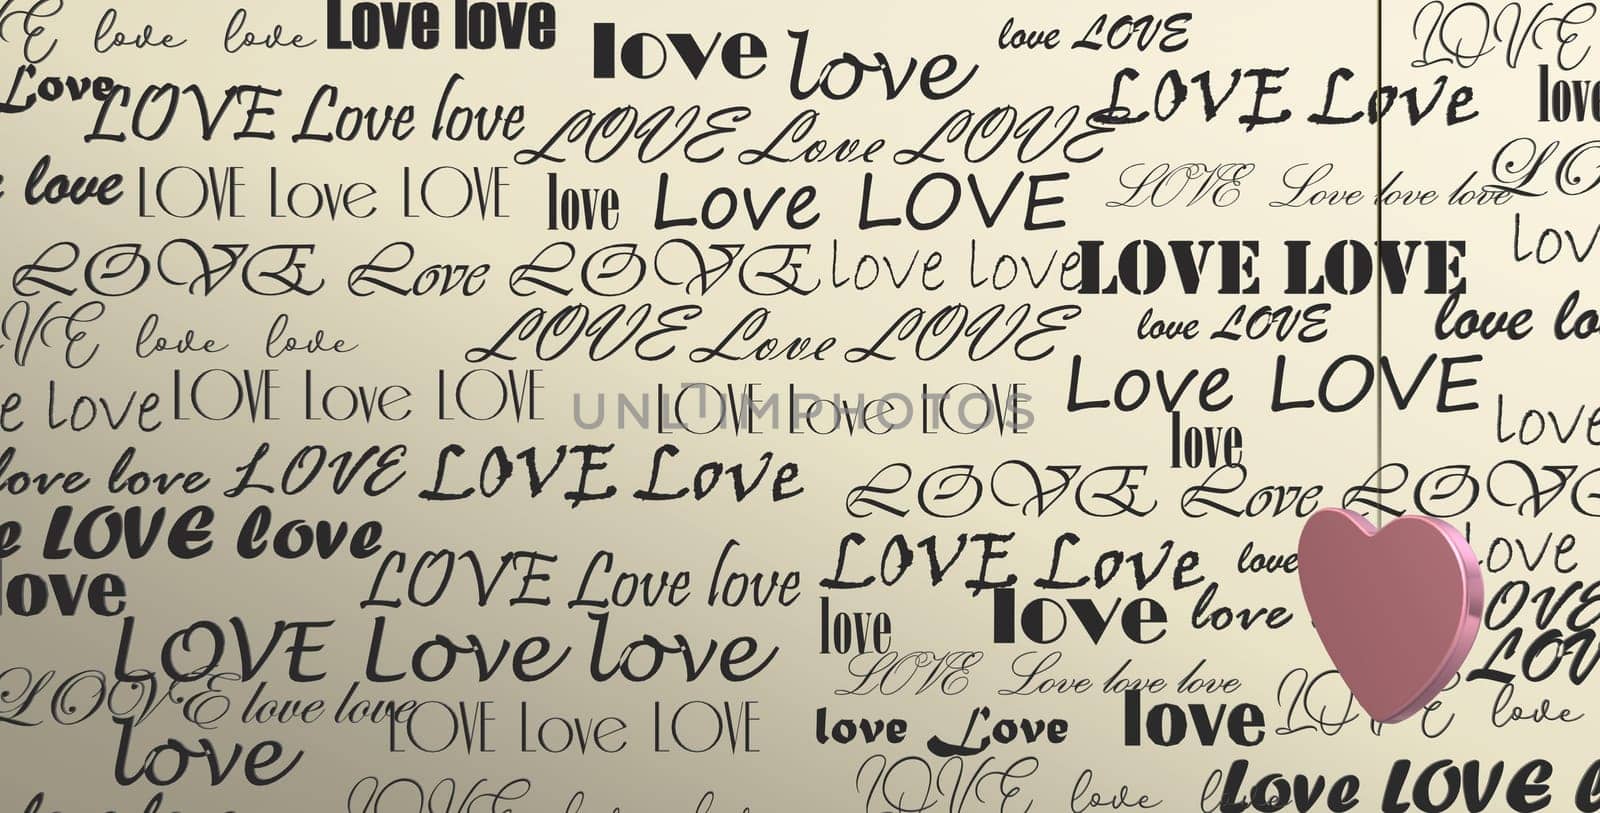 love love Love love love love love LOVE LOVE
Love LOVE Love love LOVE Love LOVE LOVE Love love
love LOVE Love LOVE love Love LOVE LOVE Love love love
LOVE Love LOVE love love LOVE LOVE
love love LOVE Love LOVE love LOVE love
love LOVE Love LOVE LOVE Love LOVE Love LOVE love
love love LOVE LOVE Love love
LOVE Love LOVE
LOVE love LOVE Love love love
love LOVE Love love love love love
LOVE Love love LOVE Love love love
LOVE love love LOVE Love LOVE love Love love LOVE love
love
LOVE love Love LOVE
UNLIMPHOTOS